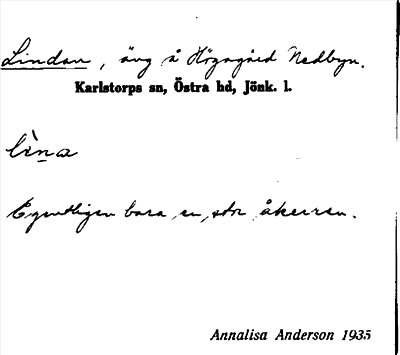 Lindan, äng å Högagård Nedbyn.
Karlstorps sn, Östra hd, Jönk. l.
lìna
Egentligen bara en stor åkerren.
Annalisa Anderson 1935